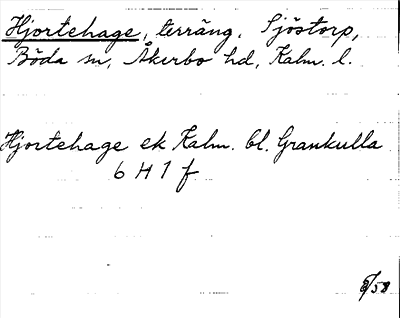 Hjortehage, terräng. Sjöstorp,
Böda sn, Åkerbo hd, Kalm. l.
Hjortehage ek Kalm. bl. Grankulla
6 H 1 f
8/58